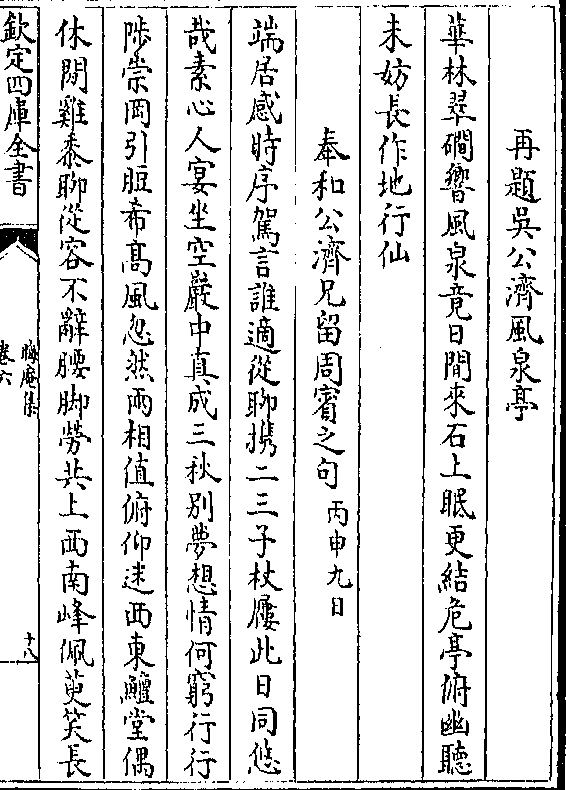 再題吳公濟風泉亭
華林翠磵響風泉竟日閒來石上眠更結危亭俯幽聽
未妨長作地行仙
奉和公濟兄留周賓之句 丙申九日
端居感時序駕言誰適從聊攜二三子杖屨此日同悠
哉素心人宴坐空巖中真成三秋別夢想情何窮行行
陟崇岡引脰希髙風忽然兩相值俯仰迷西東鱣堂偶
休閒雞黍聊從容不辭腰脚勞共上西南峰佩萸笑長
欽定四庫全書
晦庵集
卷六
十八